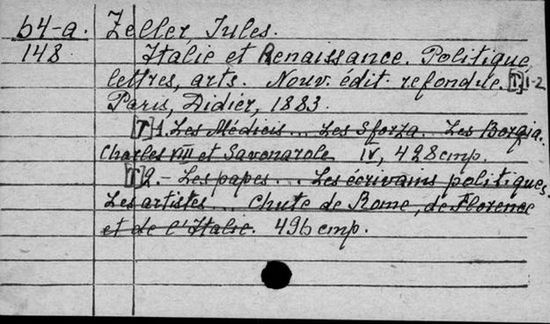 64-a. Zeller Jules.
148 Italie et Renaissance. Politique,
lettres, arts. Nouv. édit. refondue. [T.] 1-2
Paris, Didier, 1883.
[T] 1. Les Médicis... Les Sforza. Les Borgia.
Charles VIII et Savonarole IV, 428 стр.
[T] 2. - Les papes... Les écrivains politiques,
Les artistes... Chute de Rome, de Florence
et de l'Italie. 496 стр.